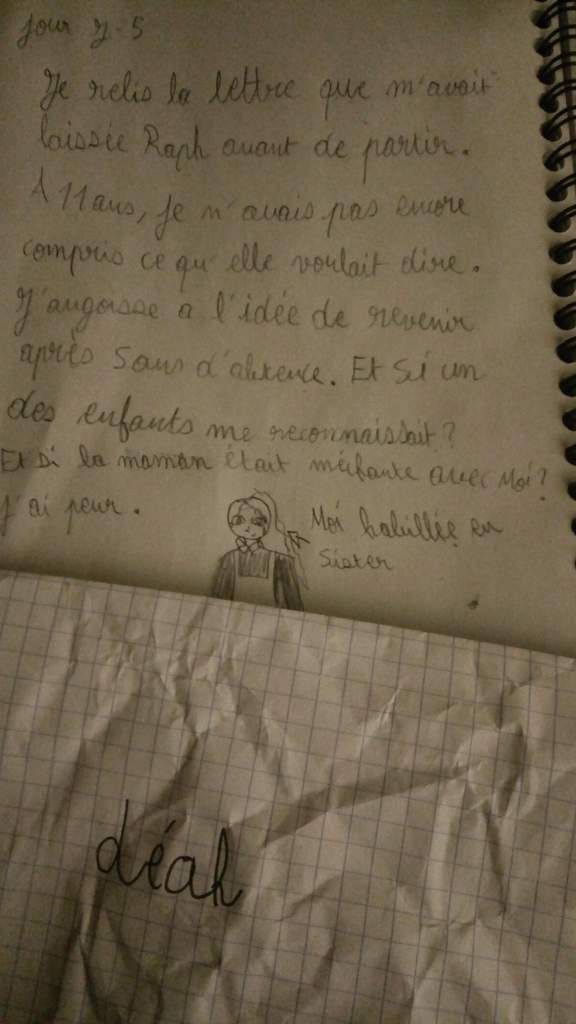 Jour J-5
Je relis la lettre que m'avait
laissée Raph avant de partir.
A 11 ans, je n'avais pas encore
compris ce qu'elle voulait dire.
J'angoisse a l'idée de revenir
après 5 ans d'absence. Et si un
des enfants me reconnaissait?
Et si la maman était méchante avec Moi?
J'ai peur.
Moi habillée en
Sister
déah